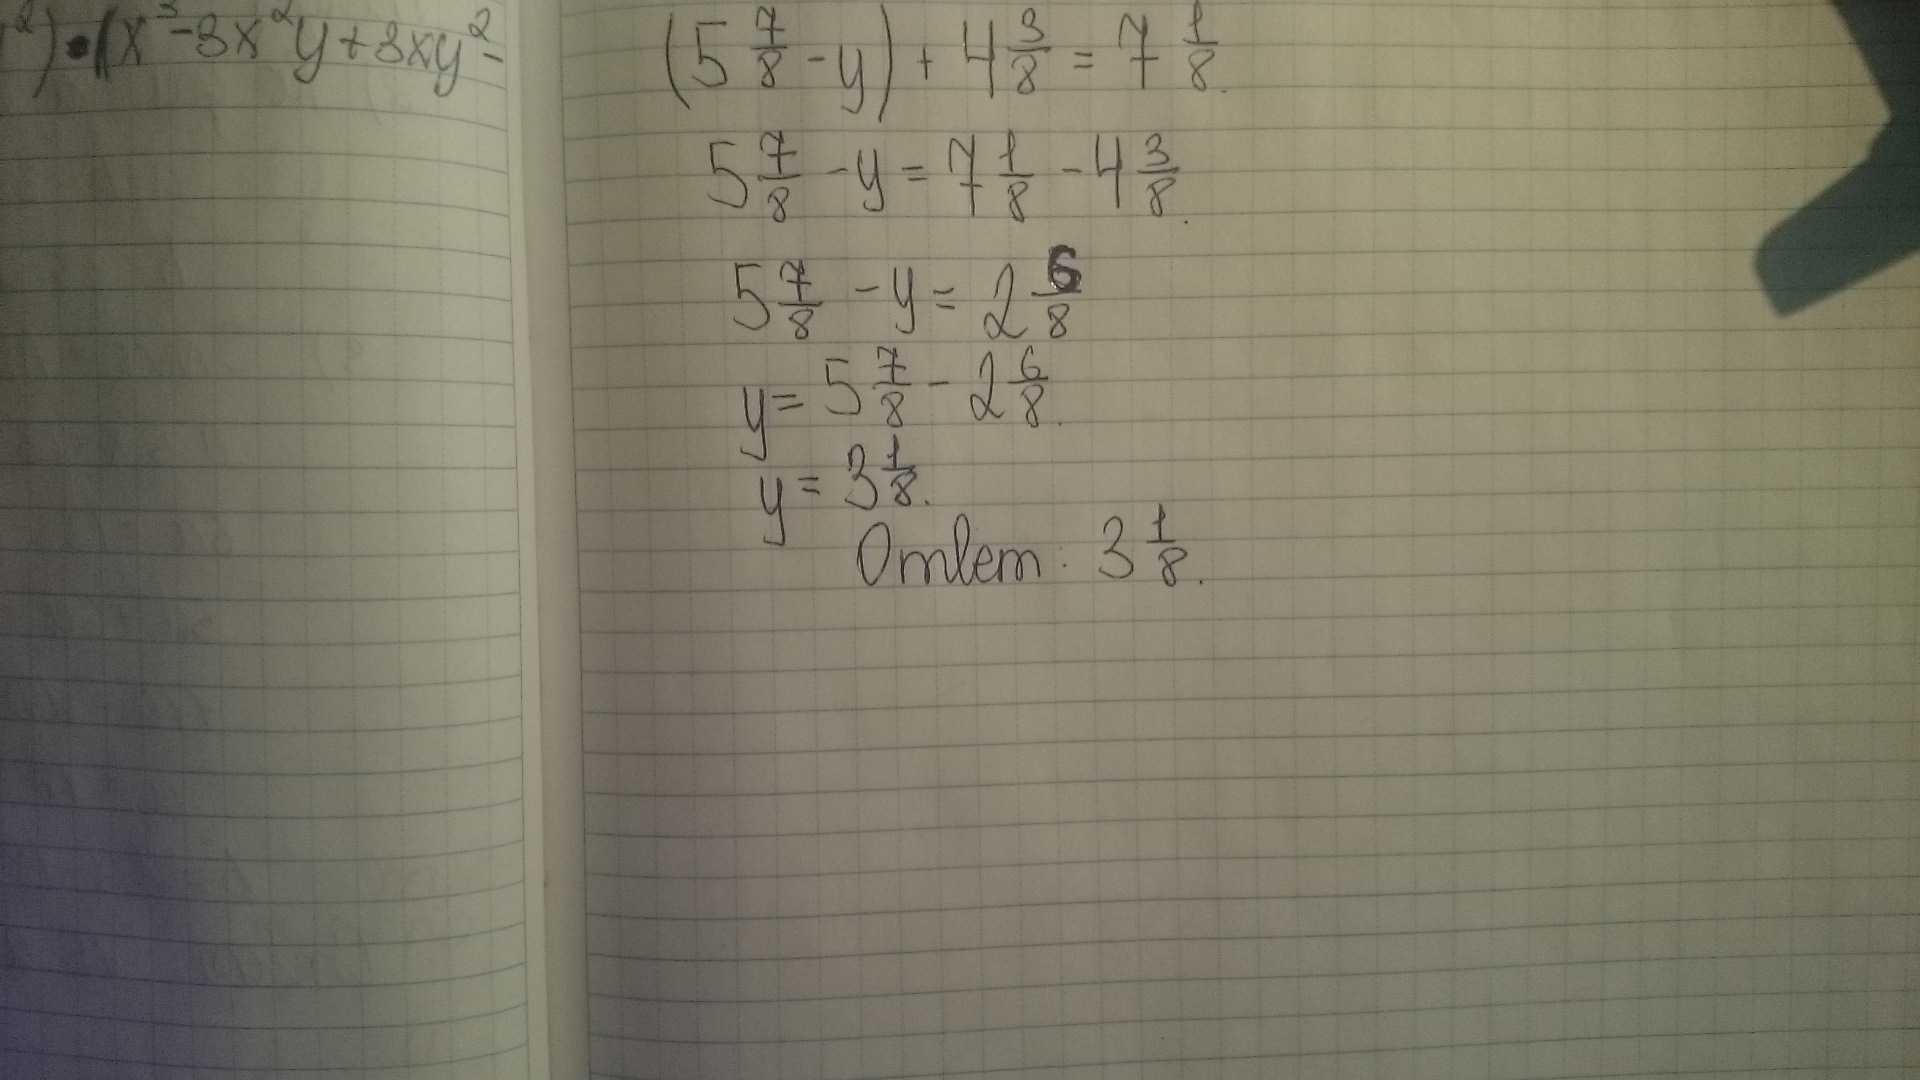 ²)·(x³-3x²y+3xy²-
(5 7/8 - y) + 4 3/8 = 7 1/8.
5 7/8 - y = 7 1/8 - 4 3/8.
5 7/8 - y = 2 6/8
y = 5 7/8 - 2 6/8.
y = 3 1/8.
Ответ: 3 1/8.